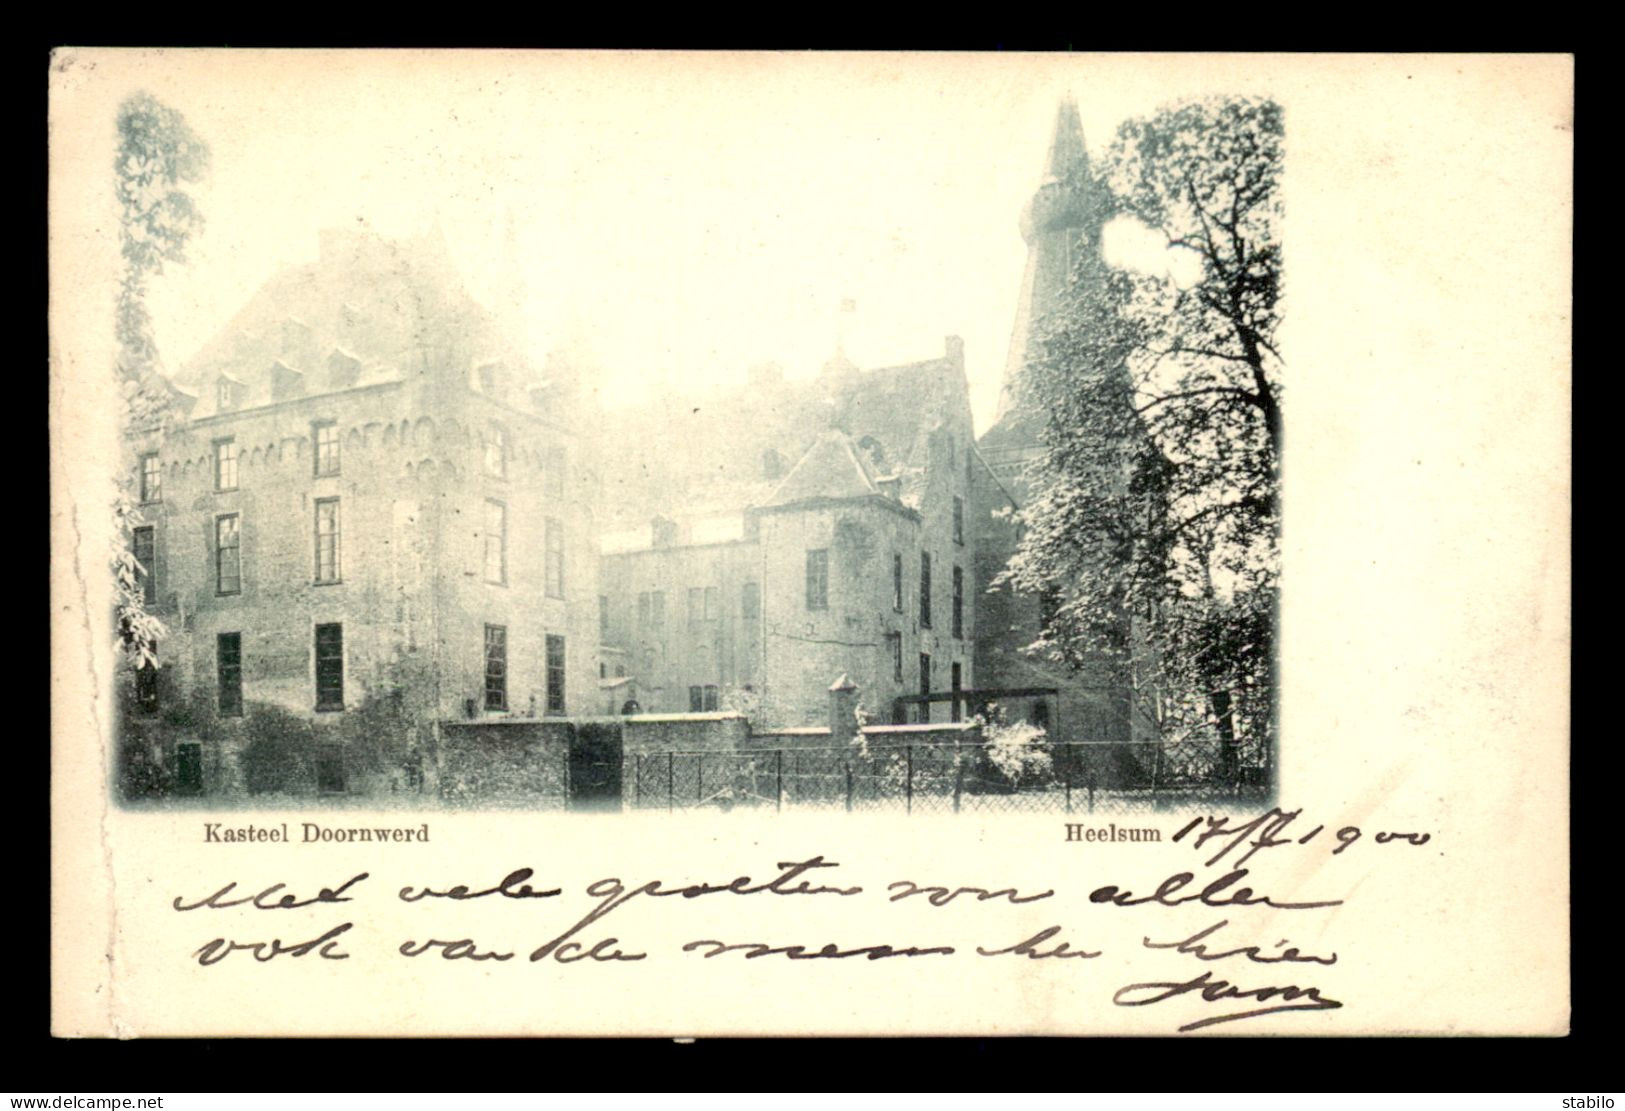 Kasteel Doornwerd
Heelsum 17/7 1900
Met vele groeten von allen
ook van de menschen hier
www.delcampe.net
stabilo